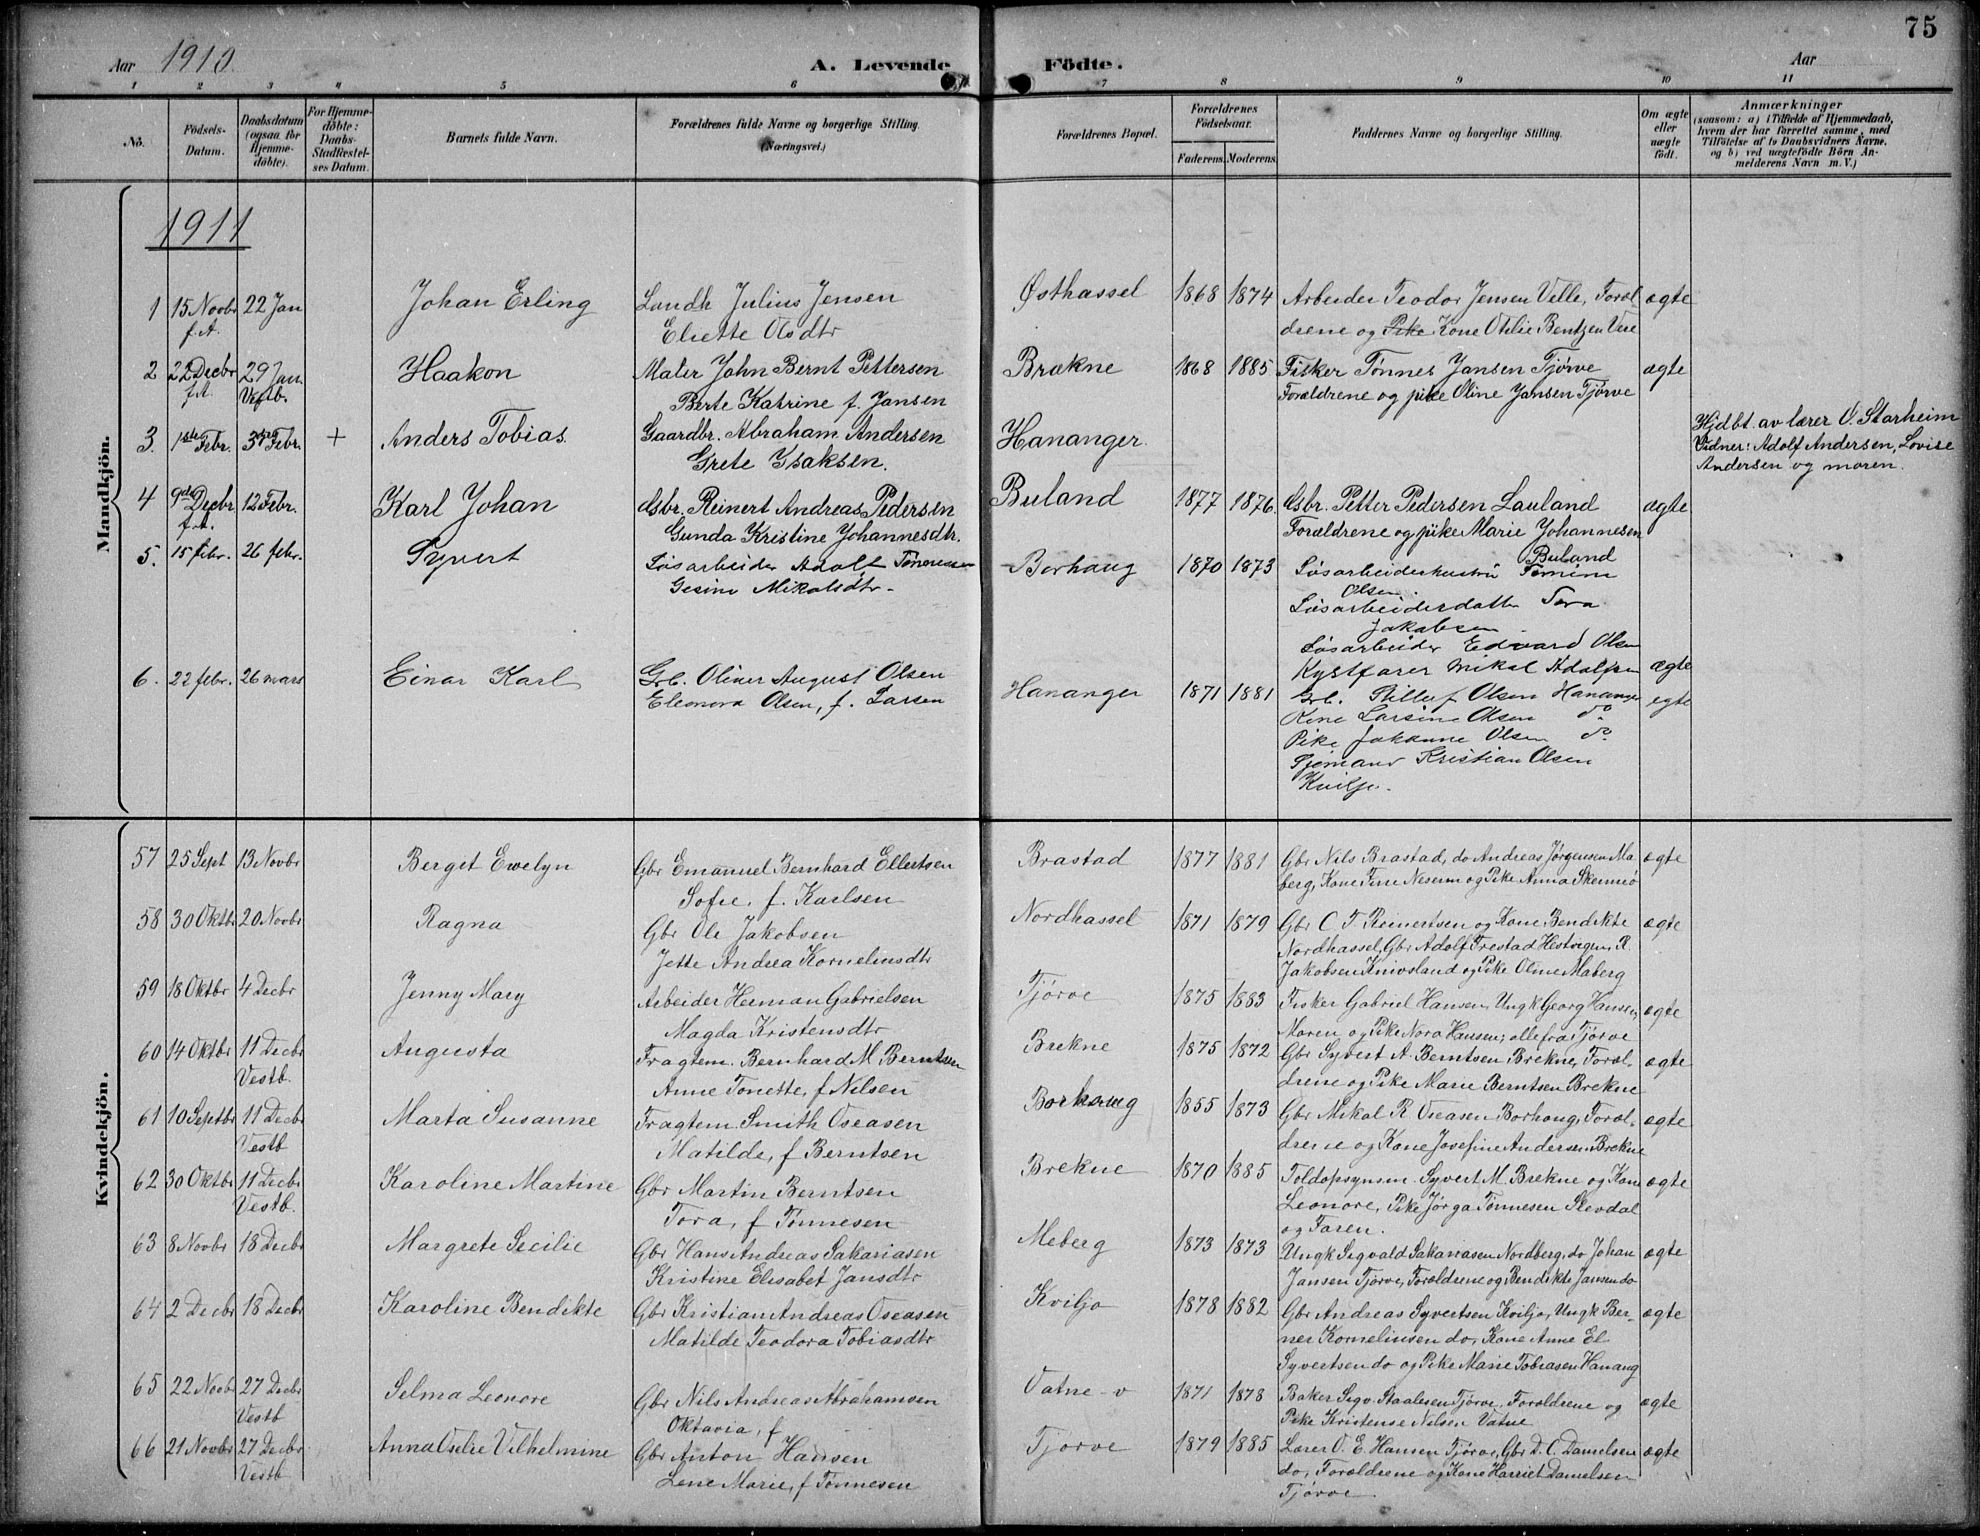 75
Aar 1910. A. Levende Födte. Aar
1 2 3 4 5 6 7 8 9 10 11
No.
Födsels-Datum.
Daabsdatum (ogsaa for Hjemme-döbte).
For Hjemme-döbte: Daabs-Stadfæstel-ses Datum.
Barnets fulde Navn.
Forældrenes fulde Navne og borgerlige Stilling. (Næringsvei.)
Forældrenes Bopæl.
Forældrenes Födselsaar.
Faderens. Moderens.
Faddernes Navne og borgerlige Stilling.
Om ægte eller uægte födt.
Anmærkninger
(saasom: a) i Tilfælde af Hjemmedaab, hvem der har forrettet samme, med Tilföielse af to Daabsvidners Navne, og b) ved uægtefödte Börn Anmelderens Navn m. V.)
Mandkjön.
1911
1 15 Novbr f.A. 22 Jan Johan Erling Landh Julius Jensen Østhassel 1868 1874 Arbeider Teodor Jensen Velle, Foræl ægte
Eliette Olsdtr drene og Pike Kone Otilie Bentzen Vere
2 22 Decbr f.A. 29 Jan. Vestb. Haakon Maler John Bernt Pettersen Brækne 1868 1885 Fisker Tønnes Jansen Tjørve ægte
Berte Katrine f. Jansen Forældrene og pike Oline Jansen Tjørve
3. 1ste Febr. 3die Febr. + Anders Tobias Gaardbr. Abraham Andersen Hananger. Hjdbt. av lærer O. Starheim
Grete Isaksen. Vidner: Adolf Andersen, Lovise
Andersen og moren.
4 9de Decbr f.A. 12 Febr. Karl Johan Gsbr. Reinert Andreas Pedersen Buland 1877 1876. Gsbr. Petter Pedersen Lauland ægte
Gunda Kristine Johannesdtr. Forældrene og pike Marie Johannesen
Buland
5. 15 febr. 26 febr. Syvert Løsarbeider Adolf Tønnessen Borhaug 1870 1873 Løsarbeiderhustru Tomine
Gesine Mikalsdtr. Olsen.
Løsarbeiderdatter Tora
Jakobsen
Løsarbeider Edvard Olsen
Kystfarer Mikal Adolfsen ægte
6. 22 febr. 26 mars Einar Karl Grb. Oliver August Olsen Hananger 1871 1881 Grb. Rilluf Olsen Hananger egte
Eleonora Olsen, f. Larsen Kone Larsine Olsen do
Pike Johanne Olsen do
Sjømand Kristian Olsen
Kvilje.
Kvindekjön.
57 25 Sept 13 Novbr Berget Ewelyn Gbr Emanuel Bernhard Ellertsen Brastad 1877 1881 Gbr Nils Brastad, do Andreas Jørgensen Ma- ægte
Sofie, f. Karlsen berg, Kone Tine Nesern og Pike Anna Skeimiø
58 30 Oktbr 20 Novbr Ragna Gbr Ole Jakobsen Nordhassel 1871 1879 Gbr C. T. Reinertsen og Kone Bendikte ægte
Jette Andrea Kornelinsdtr Nordhassel, Gbr Adolf Frestad Hestvegen, R.
Jakobsen Knivsland og Pike Oline Maberg
59 18 Oktbr 4 Decbr Jenny Mary Arbeider Herman Gabrielsen Tjørve 1875 1883 Fisker Gabriel Hansen, Ungk Georg Hansen, ægte
Magda Kristensdtr Moren og Pike Nora Hansen; alle fra Tjørve
60 14 Oktbr 11 Decbr Vestb. Augusta Fragtem. Bernhard M. Berntsen Brekne 1875 1872 Gbr Syvert A. Berntsen Brekne, Foræl- ægte
Anne Tonette, f Nilsen drene og Pike Marie Berntsen Brekne
61 10 Septbr 11 Decbr Vestb Marta Susanne Fragtem Smith Oseasen Borhaug 1855 1873 Gbr Mikal R Oseasen Borhaug, Foræl- ægte
Matilde, f Berntsen drene og Kone Josefine Andersen Brekne
62 30 Oktbr 11 Decbr Vestb. Karoline Martine Gbr Martin Berntsen Brekne 1870 1885 Toldopsynsm. Syvert M. Brekne og Kone ægte
Tora, f Tønnesen Leonore, Pike Jørga Tønnesen Slevdal
og Faren.
63 8 Novbr 18 Decbr Margrete Secilie Gbr Hans Andreas Sakariasen Meberg 1873 1873 Ungk Sigvald Sakariasen Nordberg, do Johan ægte
Kristine Elisabet Jansdtr Jansen Tjørve, Forældrene og Bendikte Jansen do
64 2 Decbr 18 Decbr Karoline Bendikte Gbr Kristian Andreas Oseasen Kviljo 1878 1882 Gbr Andreas Syvertsen Kviljo, Ungk Ber- ægte
Matilde Teodora Tobiasdtr ner Kornelinsen do, Kone Anne El.
Syvertsen do og Pike Marie Tobiasen Hanang
65 22 Novbr 27 Decbr Vestb Selma Leonore Gbr Nils Andreas Abrahamsen Vatne 1871 1878 Baker Sigv. Staalesen Tjørve, Forældrene og ægte
Oktavia, f Pike Kristense Nilsen Vatne
66 21 Novbr 27 Decbr Vestb Anna Oselie Vilhelmine Gbr Anton Hansen Tjørve 1879 1885 Lærer O. E. Hansen Tjørve, Gbr D. C. Danielsen ægte
Lene Marie, f Tønnesen do, Forældrene og Kone Harriet Danielsen
Tjørve